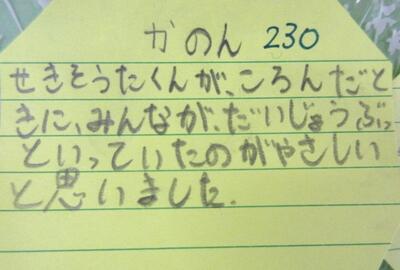 かのん 230
せきそうたくんが、ころんだと
きに、みんなが、だいじょうぶっ
といっていたのがやさしい
と思いました.